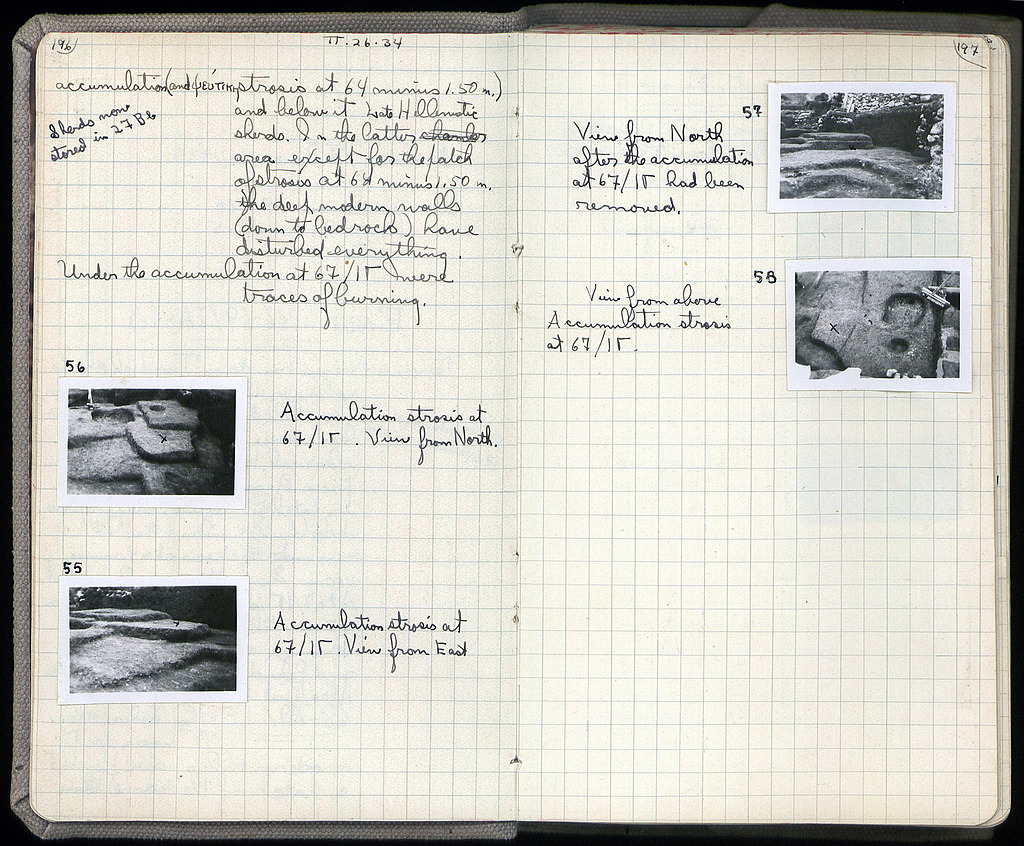 196
II·26·34
accumulation (and ψεύτικη strosis at 64 minus 1.50 m.)
and below it Late Hellenistic
sherds. In the latter chamber
area except for the patch
of strosis at 64 minus 1.50 m.
the deep modern walls
(down to bedrock) have
disturbed everything.
Under the accumulation at 67/ΙΓ were
traces of burning.
Sherds now
stored in 27 B6
56
Accumulation strosis at
67/ΙΓ. View from North.
55
Accumulation strosis at
67/ΙΓ. View from East
197
57
View from North
after the accumulation
at 67/ΙΓ had been
removed.
58
View from above
Accumulation strosis
at 67/ΙΓ.